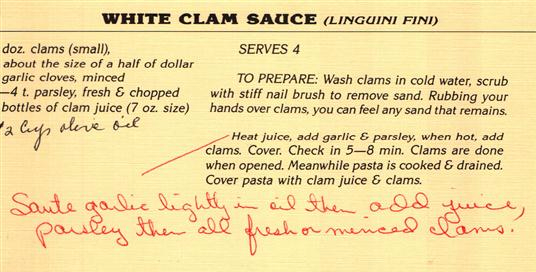 WHITE CLAM SAUCE (LINGUINI FINI)
doz. clams (small),
about the size of a half of dollar
garlic cloves, minced
—4 t. parsley, fresh & chopped
bottles of clam juice (7 oz. size)
2 Cups olive oil
SERVES 4
TO PREPARE: Wash clams in cold water, scrub
with stiff nail brush to remove sand. Rubbing your
hands over clams, you can feel any sand that remains.
Heat juice, add garlic & parsley, when hot, add
clams. Cover. Check in 5—8 min. Clams are done
when opened. Meanwhile pasta is cooked & drained.
Cover pasta with clam juice & clams.
Saute garlic lightly in oil then add juice,
parsley then all fresh or minced clams.